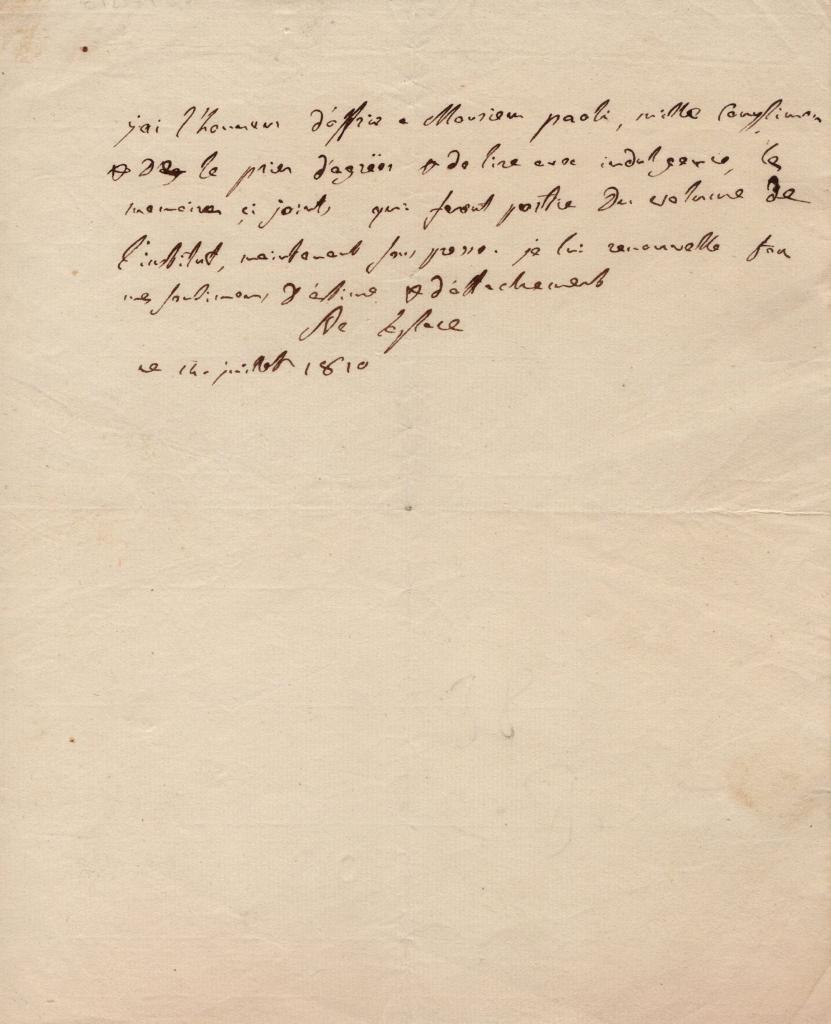 j'ai l'honneur d'offrir a Monsieur paoli, mille complimens
& de le prier d'agréer & de lire avec indulgence, les
memoires ci joints, qui feront partie du volume de
l'institut, maintenant sous presse. je lui renouvelle tous
mes sentimens d'estime & d'attachement
La place
ce 14. juillet 1810